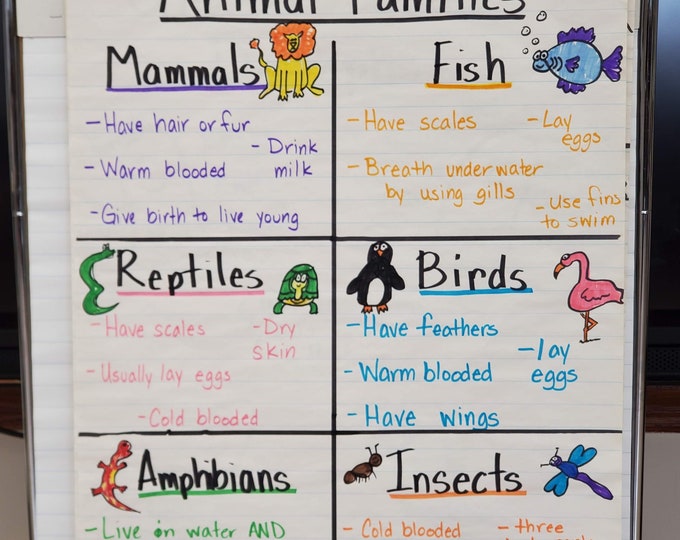 Animal Families
Mammals
- Have hair or fur
- Drink
milk
- Warm blooded
- Give birth to live young
Fish
- Have scales
- Lay
eggs
- Breath underwater
by using gills
- Use fins
to swim
Reptiles
- Have scales
- Dry
skin
- Usually lay eggs
- Cold blooded
Birds
- Have feathers
- lay
eggs
- Warm blooded
- Have wings
Amphibians
- Live on water AND
Insects
- Cold blooded
- three